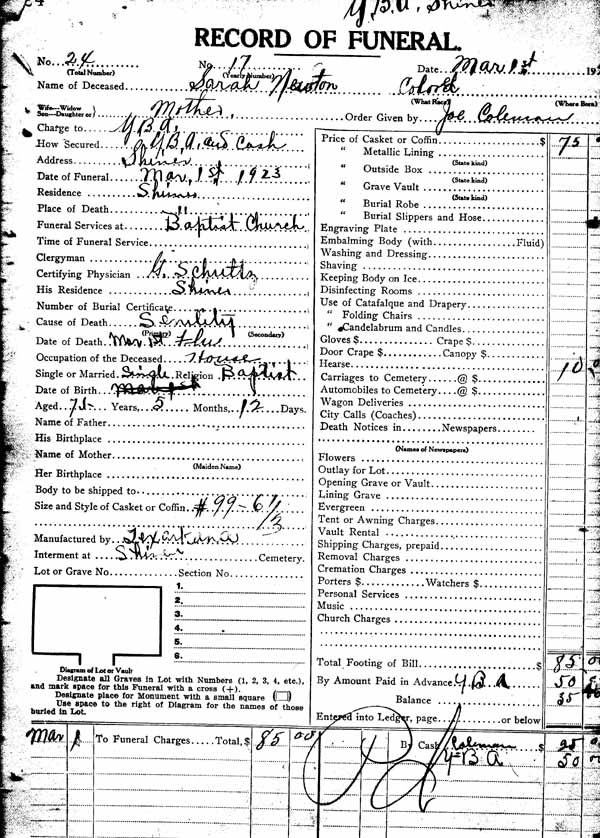 Y.B.A. Shiner
RECORD OF FUNERAL.
No. 24 No. 17 Date Mar 1st 192
(Total Number) (Yearly Number)
Name of Deceased Sarah Newton Colored
(What Race) (Where Born)
Wife—Widow Son—Daughter of Mother. Order Given by Joe Coleman
Charge to Y.B.A.
How Secured Y.B.A. and Cash
Address Shiner
Date of Funeral Mar, 1st 1923
Residence Shiner
Place of Death "
Funeral Services at Baptist Church
Time of Funeral Service
Clergyman
Certifying Physician G. Schultz
His Residence Shiner
Number of Burial Certificate
Cause of Death Senility
(Primary) (Secondary)
Date of Death Mar 1st Flu
Occupation of the Deceased House
Single or Married Single Religion Baptist
Date of Birth
Aged 75 Years, 5 Months, 12 Days.
Name of Father
His Birthplace
Name of Mother
(Maiden Name)
Her Birthplace
Body to be shipped to
Size and Style of Casket or Coffin #99-6 1/3
Manufactured by Texarkana
Interment at Shiner Cemetery.
Lot or Grave No. Section No.
1.
2.
3.
4.
5.
6.
Diagram of Lot or Vault
Designate all Graves in Lot with Numbers (1, 2, 3, 4, etc.),
and mark space for this Funeral with a cross (+).
Designate place for Monument with a small square ( )
Use space to the right of Diagram for the names of those
buried in Lot.
Price of Casket or Coffin $ 75
" Metallic Lining
(State kind)
" Outside Box
(State kind)
" Grave Vault
(State kind)
" Burial Robe
" Burial Slippers and Hose
Engraving Plate
Embalming Body (with Fluid)
Washing and Dressing
Shaving
Keeping Body on Ice
Disinfecting Rooms
Use of Catafalque and Drapery
" Folding Chairs
" Candelabrum and Candles
Gloves $ Crape $
Door Crape $ Canopy $
Hearse 10
Carriages to Cemetery @ $
Automobiles to Cemetery @ $
Wagon Deliveries
City Calls (Coaches)
Death Notices in Newspapers
(Names of Newspapers)
Flowers
Outlay for Lot
Opening Grave or Vault
Lining Grave
Evergreen
Tent or Awning Charges
Vault Rental
Shipping Charges, prepaid
Removal Charges
Cremation Charges
Porters $ Watchers $
Personal Services
Music
Church Charges
Total Footing of Bill $ 85 00
By Amount Paid in Advance Y.B.A 50
Balance 35
Entered into Ledger, page or below
Mar 1 To Funeral Charges Total, $ 85 00 By Cash Coleman $
Y-B A 50 00